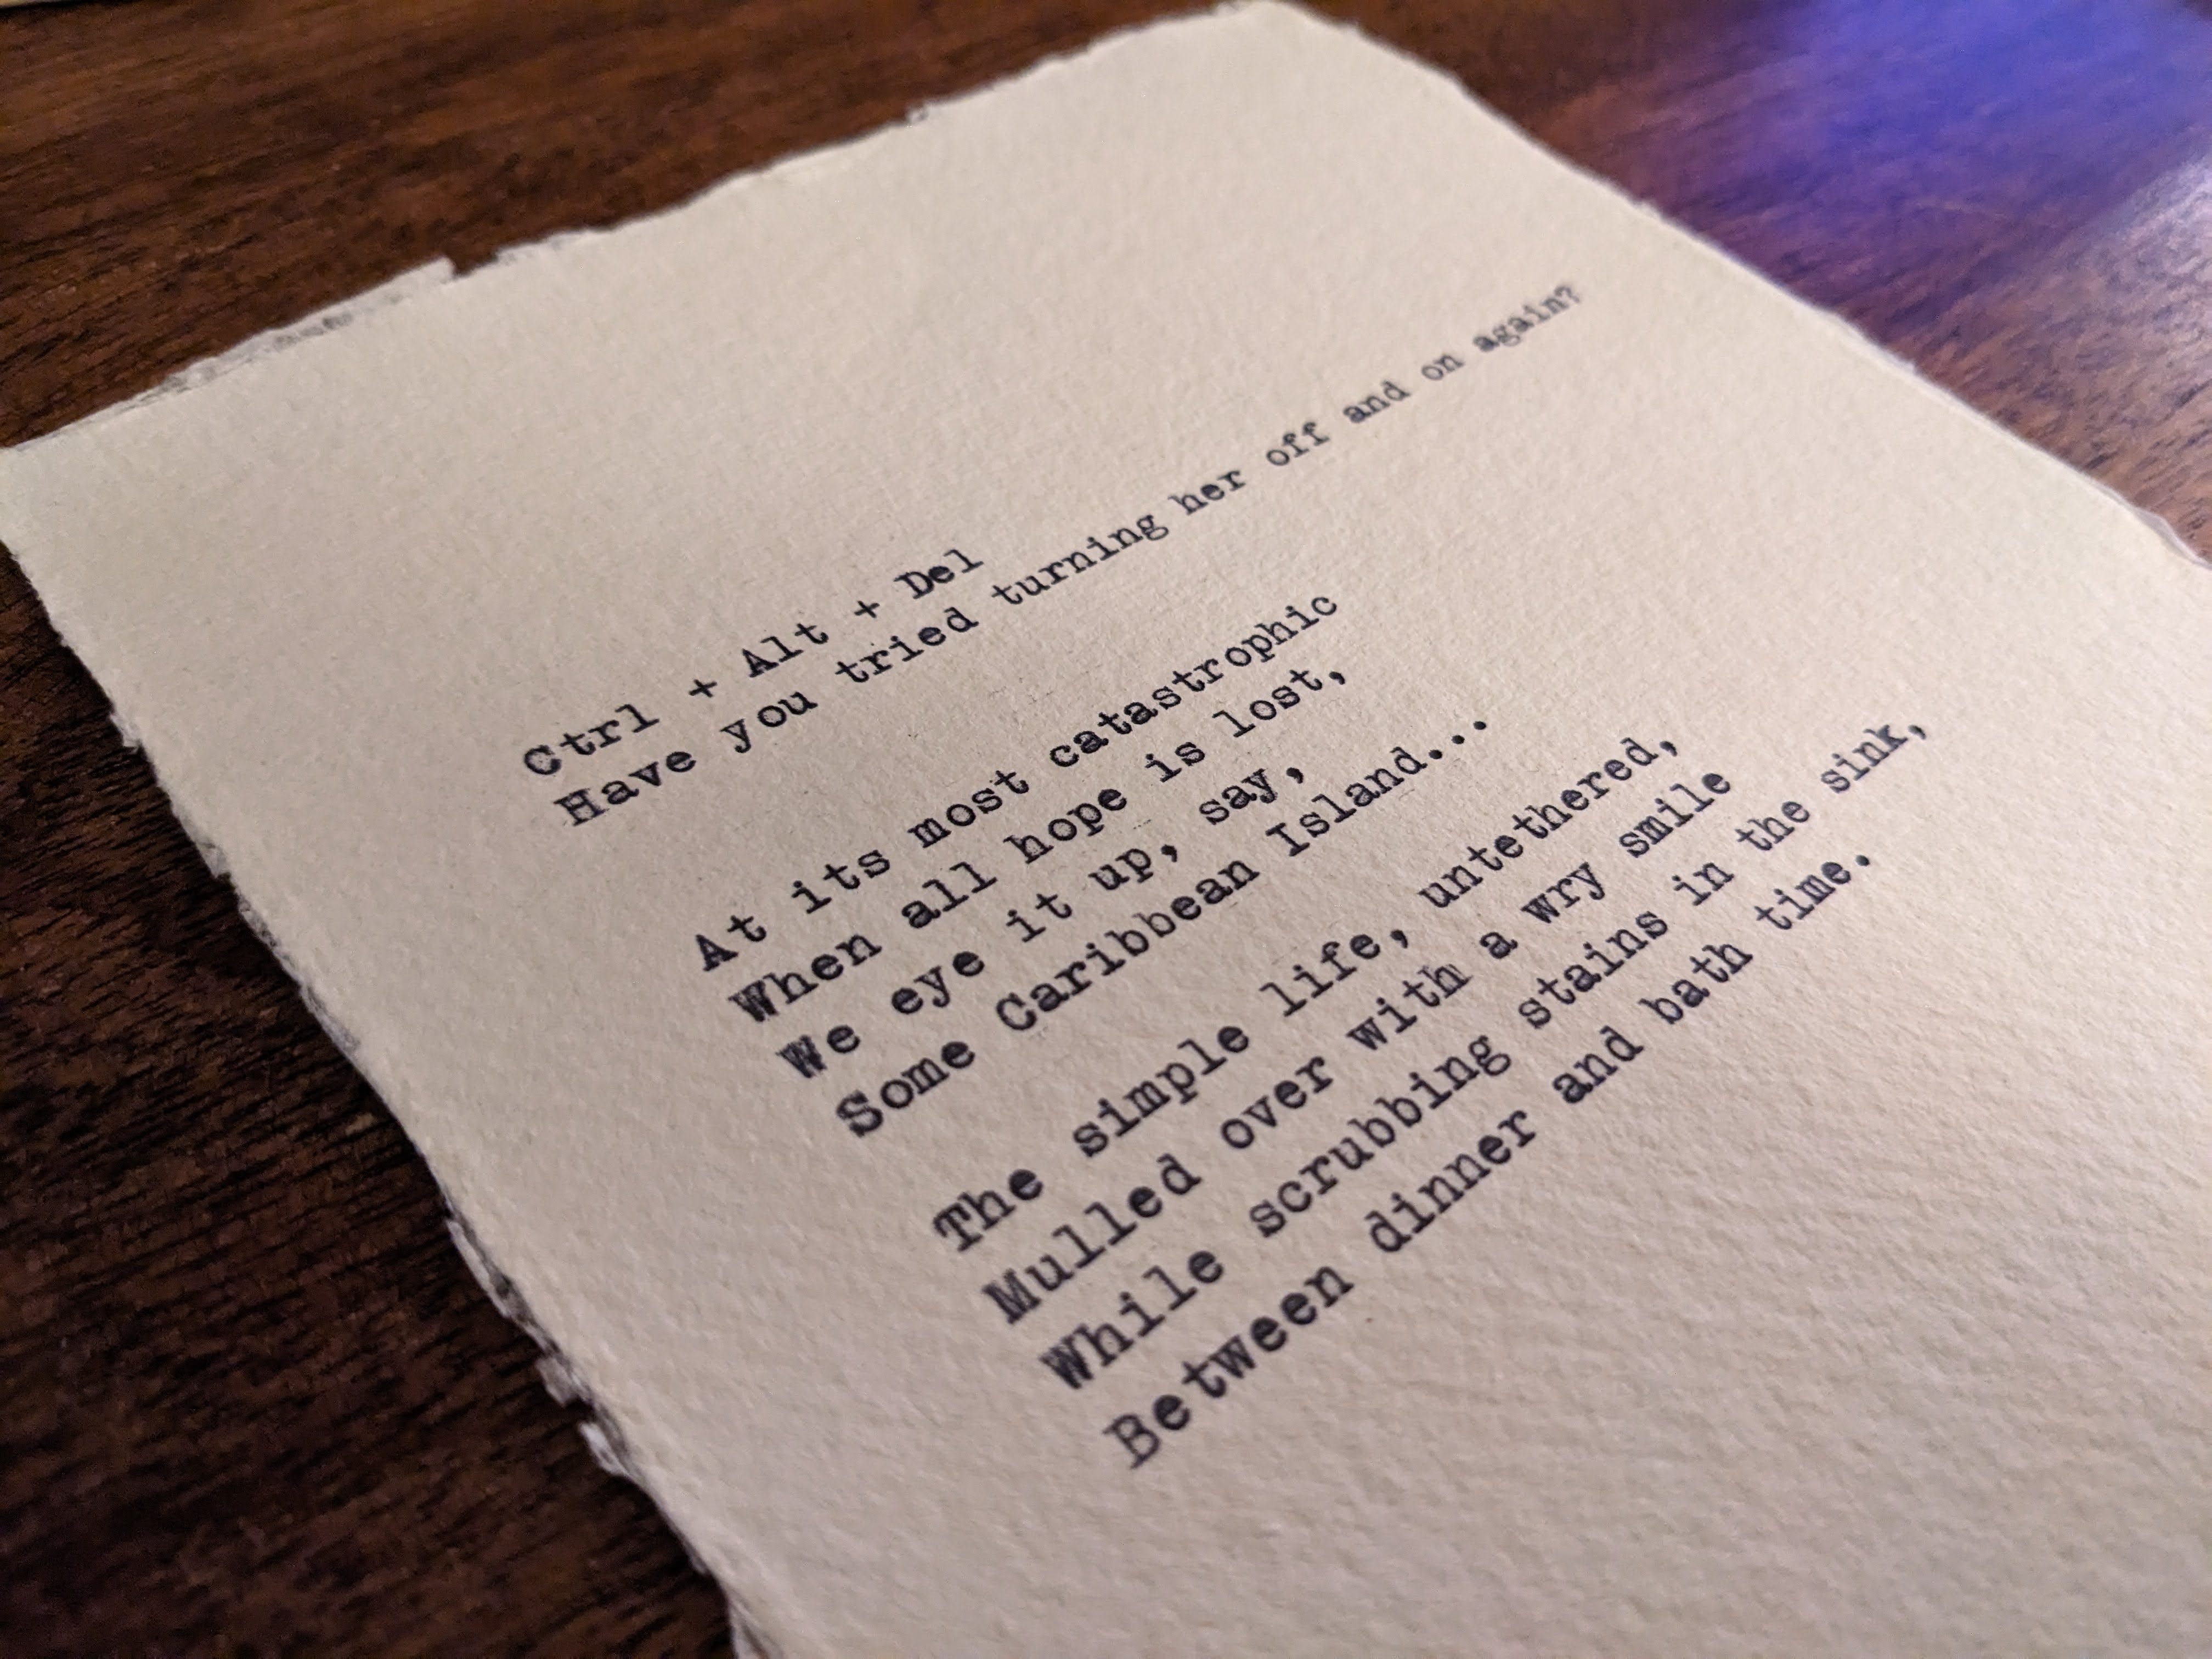 Ctrl + Alt + Del
Have you tried turning her off and on again?
At its most catastrophic
When all hope is lost,
We eye it up, say,
Some Caribbean Island...
The simple life, untethered,
Mulled over with a wry smile
While scrubbing stains in the sink,
Between dinner and bath time.